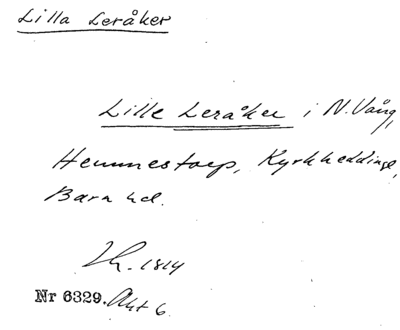 Lilla Leråker
Lille Leråker i N. Vång,
Hemmestorp, Kyrkheddinge,
Bara hd.
Lh. 1814
Nr 6329. Akt 6